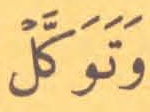 وَتَوَكَّلْ